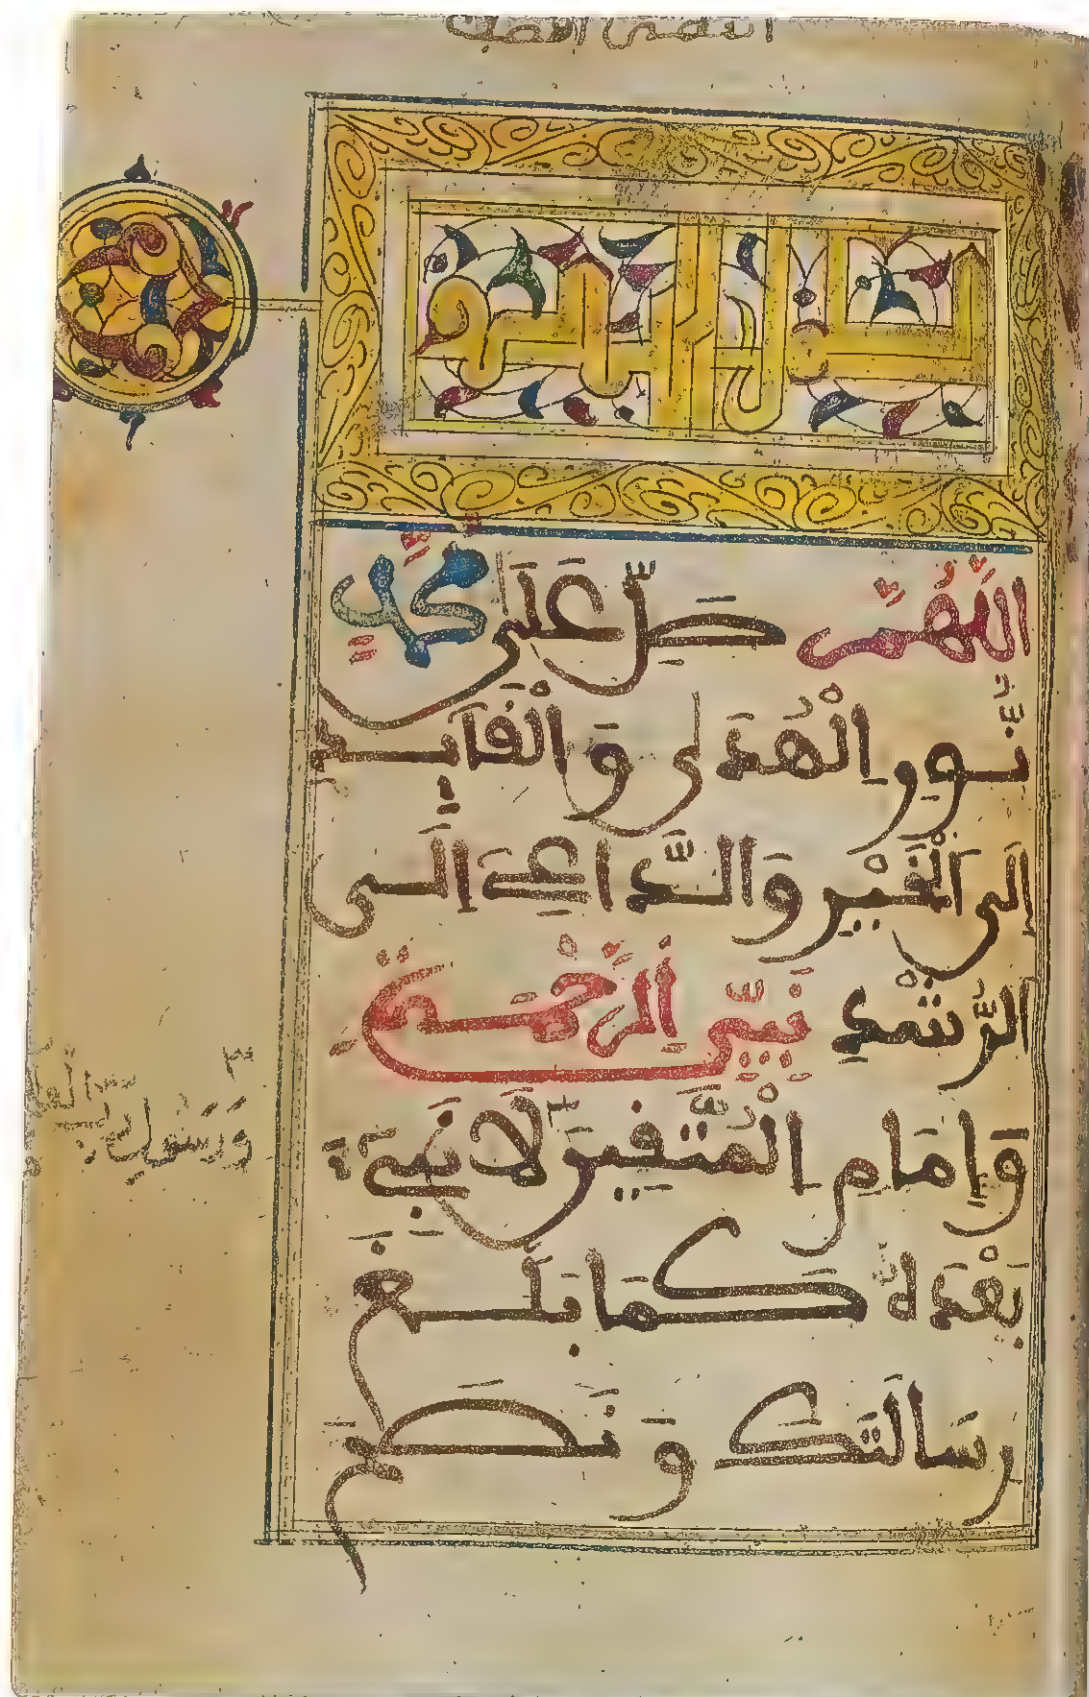 اللَّهُمَّ صَلِّ عَلَى مُحَمَّدٍ
نُّورِ الْهُدَى وَالْقَايِدِ
إِلَى الْخَيْرِ وَالدَّاعِي إِلَى
الرُّشْدِ نَبِيِّ الرَّحْمَةِ
وَإِمَامِ الْمُتَّقِينَ لَا نَبِيَّ
بَعْدَهُ كَمَا بَلَّغَ
رِسَالَتَكَ وَنَصَحَ
وَرَسُولِ